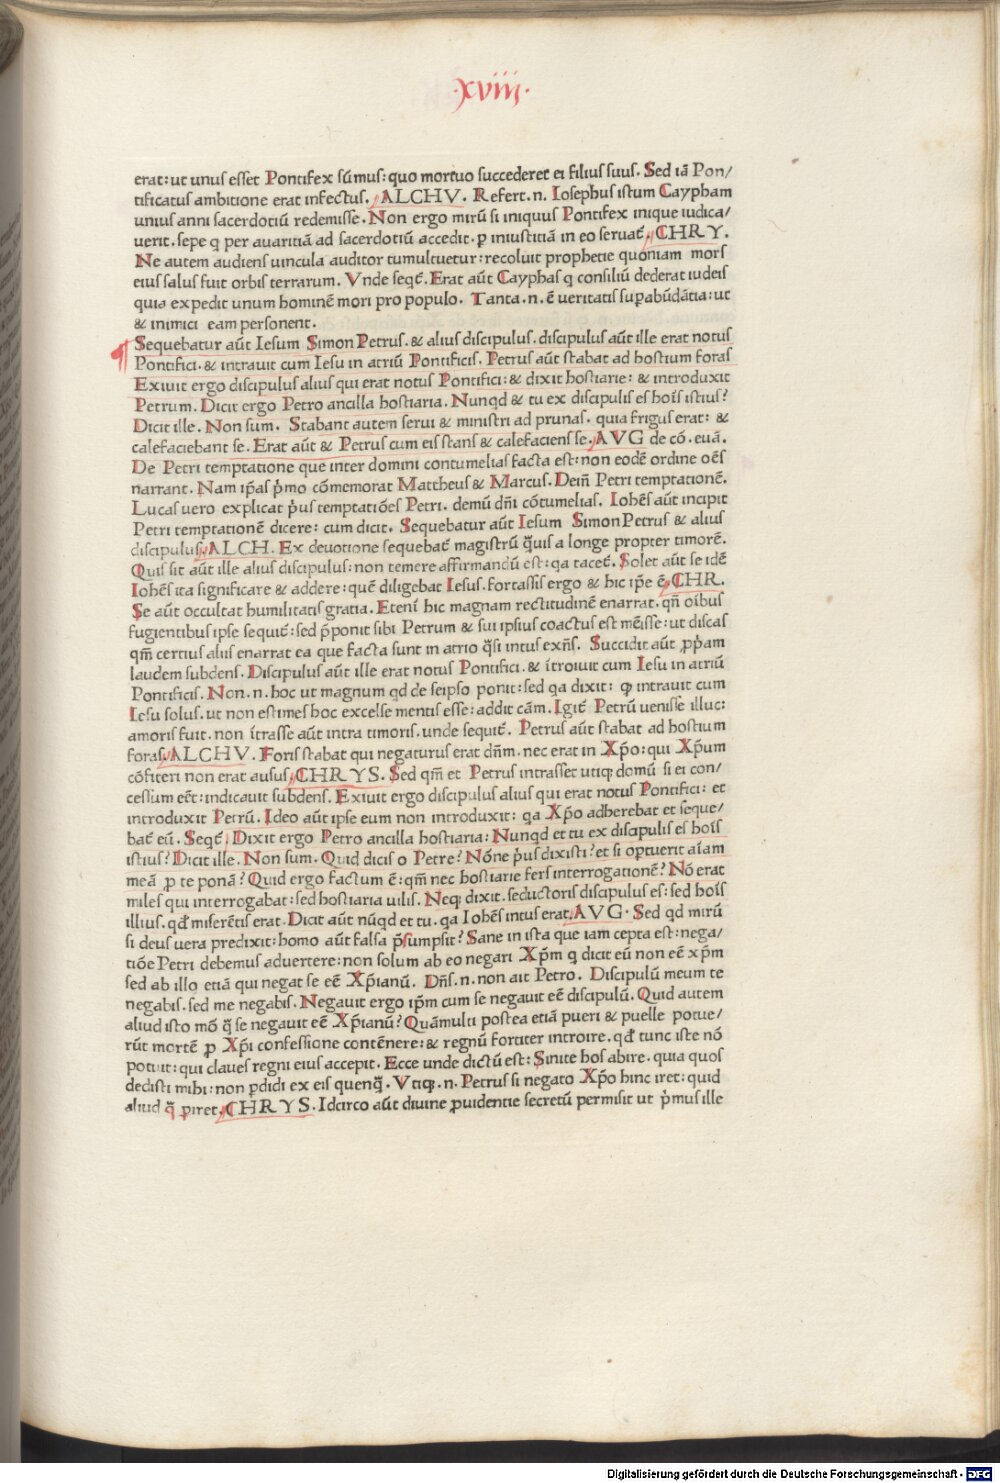 ·xviij·
erat: ut unus esset Pontifex sūmus: quo mortuo succederet ei filius suus. Sed iā Pon/
tificatus ambitione erat infectus. ALCHV. Refert .n. Iosephus istum Caypham
unius anni sacerdotiū redemisse. Non ergo mirū si iniquus Pontifex inique iudica/
uerit. sepe q per auaritiā ad sacerdotiū accedit. ꝑ iniustitiā in eo seruat᷑. CHRY.
Ne autem audiens uincula auditor tumultuetur: recoluit prophetie quoniam mors
eius salus fuit orbis terrarum. Vnde seqt᷑. Erat aūt Cayphas q consiliū dederat iudeis
quia expedit unum hominē mori pro populo. Tanta .n. ē ueritatis suꝑabūdātia: ut
& inimici eam personent.
¶ Sequebatur aūt Iesum Simon Petrus. & alius discipulus. discipulus aūt ille erat notus
Pontifici. & intrauit cum Iesu in atriū Pontificis. Petrus aūt stabat ad hostium foras
Exiuit ergo discipulus alius qui erat notus Pontifici: & dixit hostiarie: & introduxit
Petrum. Dicit ergo Petro ancilla hostiaria. Nunqd & tu ex discipulis es hoīs istius?
Dicit ille. Non sum. Stabant autem serui & ministri ad prunas. quia frigus erat: &
calefaciebant se. Erat aūt & Petrus cum eis stans & calefaciens se. AVG de cō. euā.
De Petri temptatione que inter domini contumelias facta est: non eodē ordine oēs
narrant. Nam ip̄as p̄mo cōmemorat Mattheus & Marcus. Dein̄ Petri temptationē.
Lucas uero explicat p̄us temptatiōes Petri. demū dn̄i cōtumelias. Ioh̄es aūt incipit
Petri temptationē dicere: cum dicit. Sequebatur aūt Iesum Simon Petrus & alius
discipulus. ALCH. Ex deuotione sequebat᷑ magistrū q̄uis a longe propter timorē.
Quis sit aūt ille alius discipulus: non temere affirmandū est: qa tacet᷑. Solet aūt se idē
Ioh̄es ita significare & addere: quē diligebat Iesus. fortassis ergo & hic ip̄e ē. CHR.
Se aūt occultat humilitatis gratia. Etenī hic magnam rectitudinē enarrat. qn̄ oībus
fugientibus ipse sequit᷑: sed p̄ponit sibi Petrum & sui ipsius coactus est mēisse: ut discas
qm̄ certius aliis enarrat ea que facta sunt in atrio q̄si intus exn̄s. Succidit aūt ꝓp̄am
laudem subdens. Discipulus aūt ille erat notus Pontifici. & ītroiuit cum Iesu in atriū
Pontificis. Non .n. hoc ut magnum qd de seipso ponit: sed qa dixit: ꝙ intrauit cum
Iesu solus. ut non estimes hoc excelse mentis esse: addit cām. Igit᷑ Petrū uenisse illuc:
amoris fuit. non ītrasse aūt intra timoris. unde sequit᷑. Petrus aūt stabat ad hostium
foras. ALCHV. Foris stabat qui negaturus erat dn̄m. nec erat in Xp̄o: qui Xp̄um
cōfiteri non erat ausus. CHRYS. Sed qm̄ et Petrus intrasset utiqꝫ domū si ei con/
cessum eēt: indicauit subdens. Exiuit ergo discipulus alius qui erat notus Pontifici: et
introduxit Petrū. Ideo aūt ipse eum non introduxit: qa Xp̄o adherebat et seque/
bat᷑ eū. Seqt᷑. Dixit ergo Petro ancilla hostiaria: Nunqd et tu ex discipulis es hoīs
istius? Dicit ille. Non sum. Quid dicis o Petre? Nōne p̄us dixisti? et si oꝑtuerit aīam
meā ꝓ te ponā? Quid ergo factum ē: qm̄ nec hostiarie fers interrogationē? Nō erat
miles qui interrogabat: sed hostiaria uilis. Neqꝫ dixit. seductoris discipulus es: sed hoīs
illius. qd̄ miserētis erat. Dicit aūt nūqd et tu. qa Ioh̄es intus erat. AVG. Sed qd mirū
si deus uera predixit: homo aūt falsa p̄sumpsit? Sane in ista que iam cepta est: nega/
tiōe Petri debemus aduertere: non solum ab eo negari Xp̄m q dicit eū non eē xp̄m
sed ab illo etiā qui negat se eē Xp̄ianū. Dn̄s .n. non ait Petro. Discipulū meum te
negabis. sed me negabis. Negauit ergo ip̄m cum se negauit eē discipulū. Quid autem
aliud isto mō q̄ se negauit eē Xp̄ianū? Quāmulti postea etiā pueri & puelle potue/
rūt mortē ꝓ Xp̄i confessione contēnere: & regnū fortiter introire. qd̄ tunc iste nō
potuit: qui claues regni eius accepit. Ecce unde dictū est: Sinite hos abire. quia quos
dedisti mihi: non ꝑdidi ex eis quenq̄. Vtiqꝫ .n. Petrus si negato Xp̄o hinc iret: quid
aliud q̄ ꝑiret. CHRYS. Idcirco aūt diuine ꝓuidentie secretū permisit ut p̄mus ille
Digitalisierung gefördert durch die Deutsche Forschungsgemeinschaft - DFG